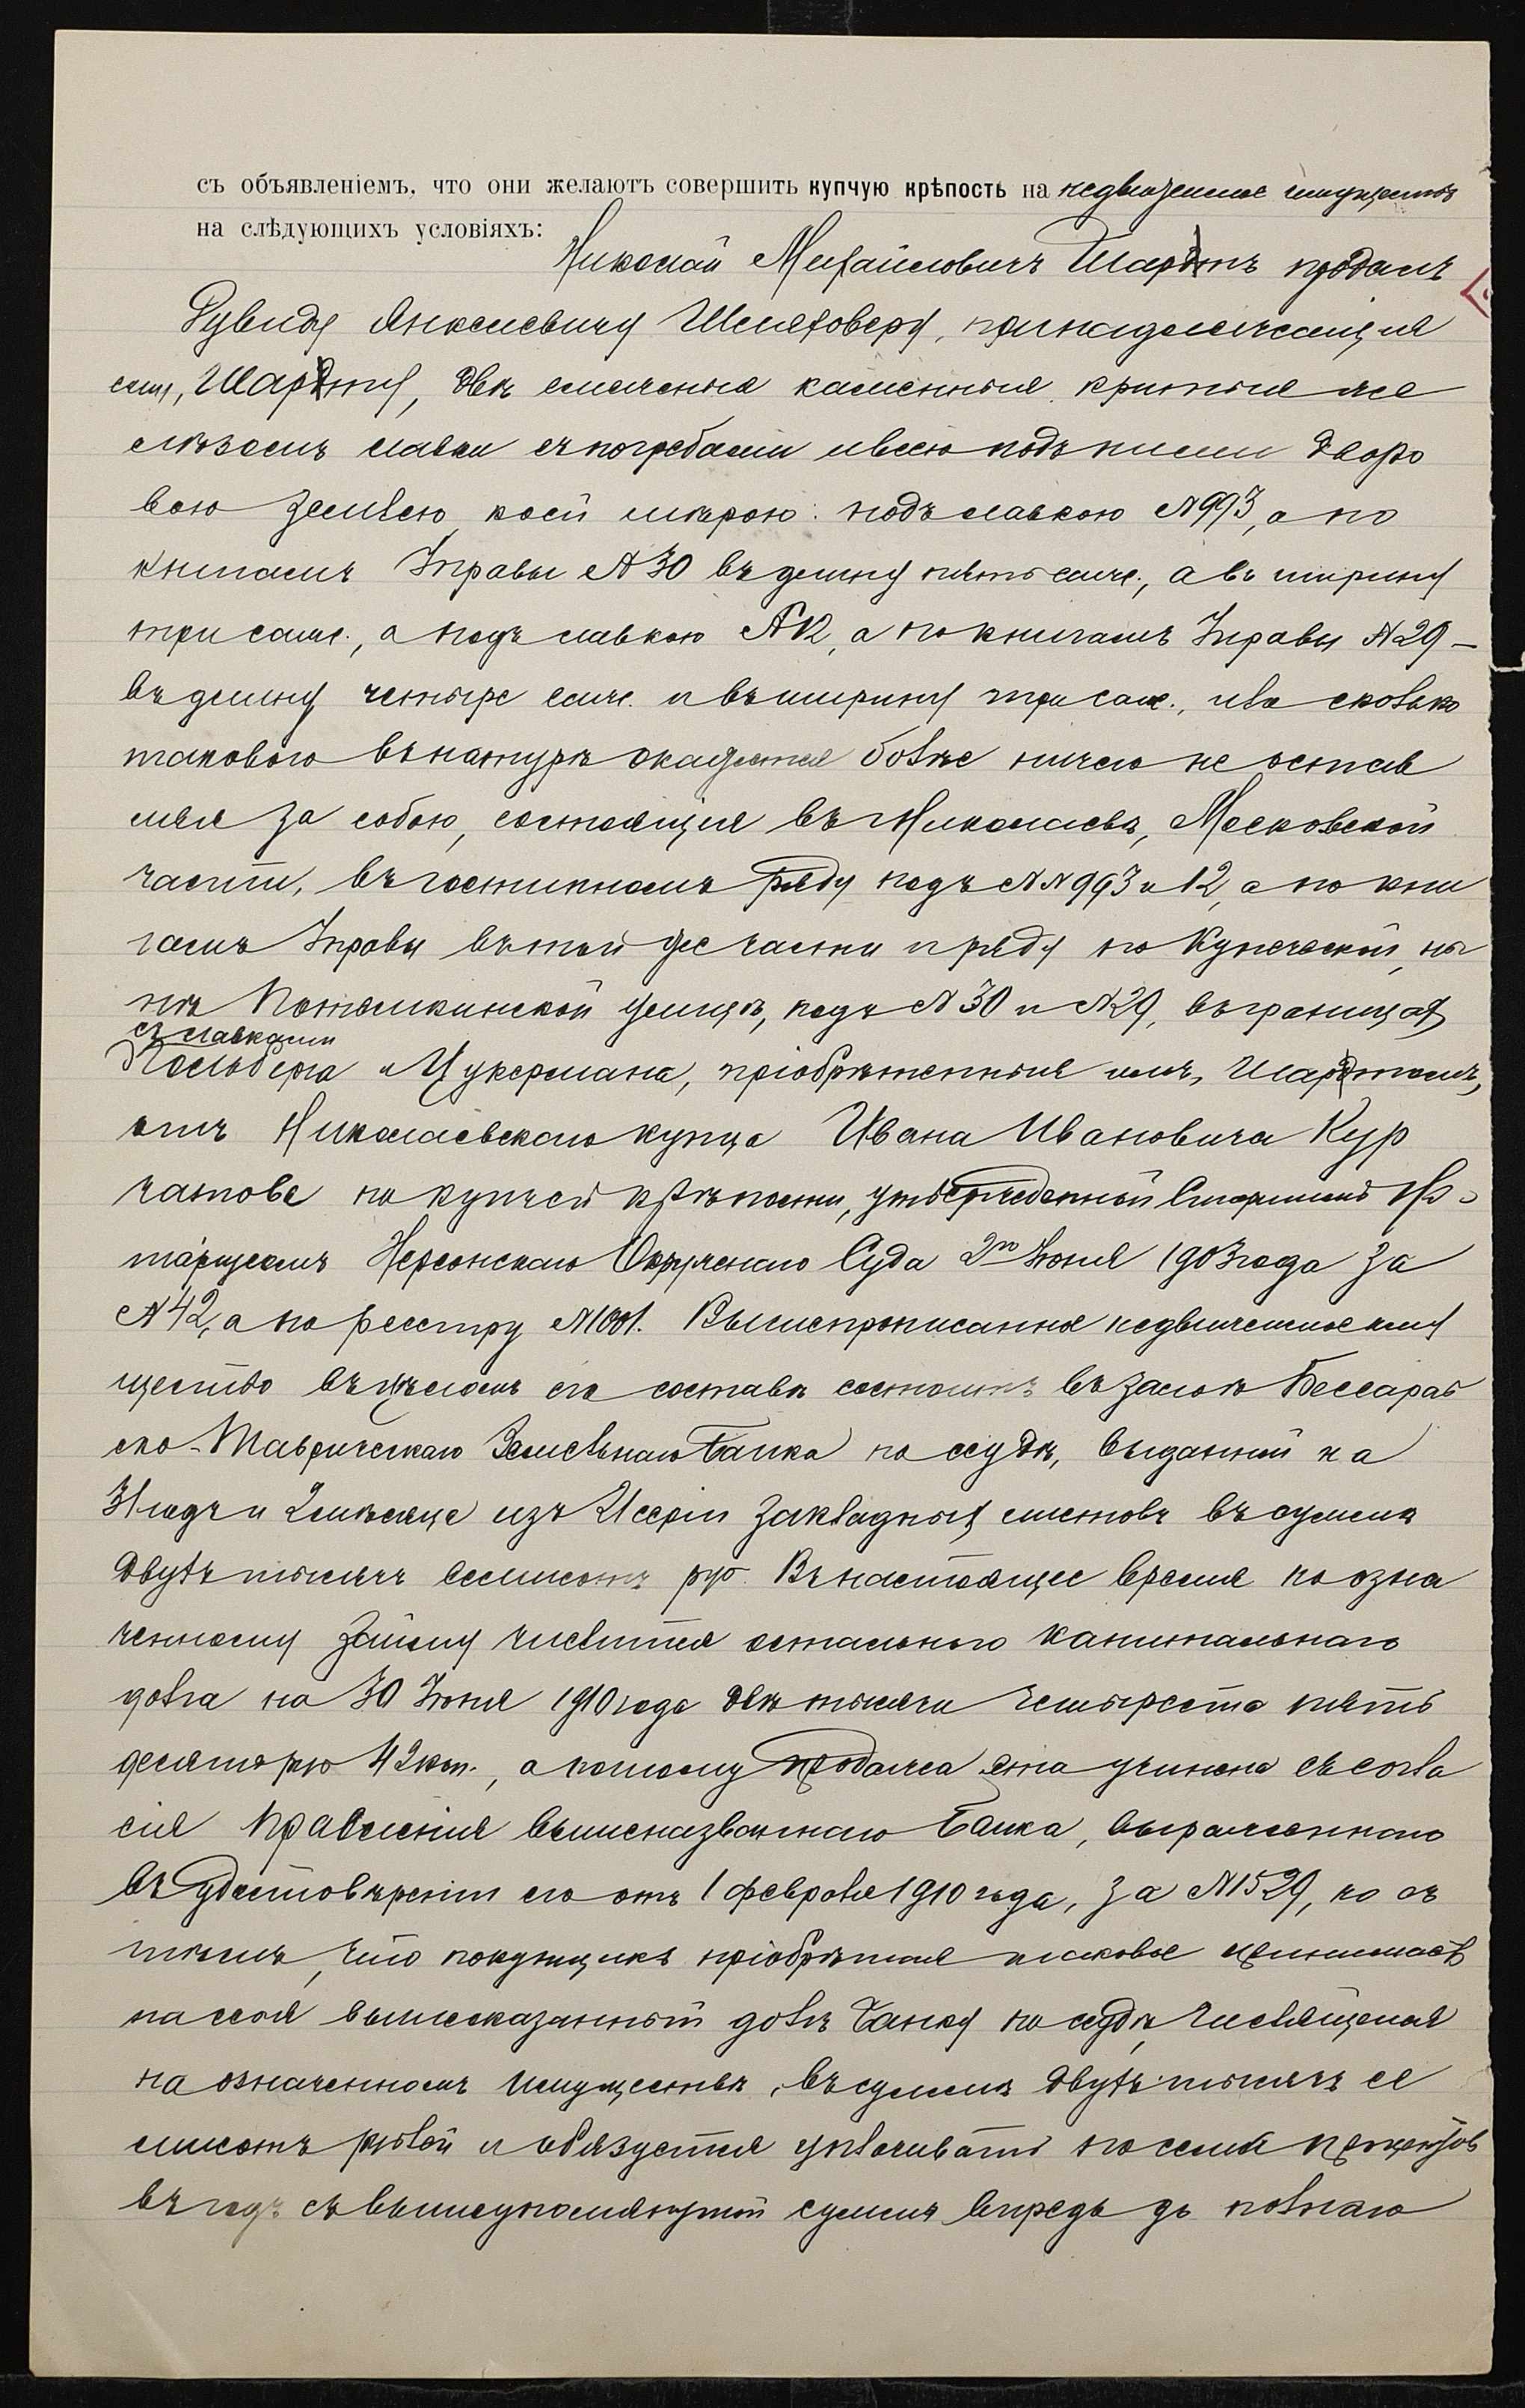 съ объявленіемъ, что они желаютъ совершить купчую крѣпость на недвижимое имущество
на слѣдующихъ условіяхъ:
Николай Михайловичъ Шардтъ продалъ
Рувиду Янкелевичу Шеметоверу, принадлежащія
ему, Шардту, двѣ смежныя каменныя крытыя же
лѣзомъ лавки съ погребами и всею подъ ними дворо
вою землею коей мѣрою: подъ лавкою №993, а по
книгамъ Управы №30 въ длину пять саж., а въ ширину
три саж., а подъ лавкою №12, а по книгамъ Управы №29 –
въ длину четыре саж. и въ ширину три саж., или сколько
такового въ натурѣ окажется болѣе ничего не остав
ляя за собою, состоящія въ Николаевѣ, Московской
части, въ гостинномъ ряду подъ №№993 и 12, а по кни
гамъ Управы въ той же части и ряду по Купеческой, ны
нѣ Потемкинской улицѣ, подъ №30 и №29, въ границахъ
съ лавками
Гольберга и Цукермана, пріобрѣтенныя имъ, Шардтомъ,
отъ Николаевскаго купца Ивана Ивановича Кур
чатова по купчей крѣпости, утвержденной Старшимъ Но-
таріусомъ Херсонскаго Окружнаго Суда 2го Іюня 1903 года за
№42, а по реестру №1001. Вышепрописанное недвижимое иму
щество въ цѣломъ его составѣ состоитъ въ залогѣ Бессараб
ско-Таврическаго Земельнаго Банка по ссудѣ, выданной на
31 годъ и 2 мѣсяца изъ И серіи закладныхъ листовъ въ суммѣ
двухъ тысячъ семисотъ руб. Въ настоящее время по озна
ченному займу числится остального капитальнаго
долга на 30 Іюня 1910 года двѣ тысячи четыреста пять
десятъ рю 42 коп., а потому продажа эта учинена съ согла
сія Правленія вышеназваннаго Банка, выраженнаго
въ удостовѣреніи его отъ 1 февраля 1910 года, за №1529, но съ
тѣмъ, что покупщикъ пріобрѣтая таковое принимаетъ
на себя вышесказанный долгъ Банку по ссудѣ, числящемся
на означенномъ имуществѣ, въ суммѣ двухъ тысячъ се
мисотъ рублей и обязуется уплачивать по семи процентовъ
въ годъ съ вышеупомянутой суммы впредь до полнаго